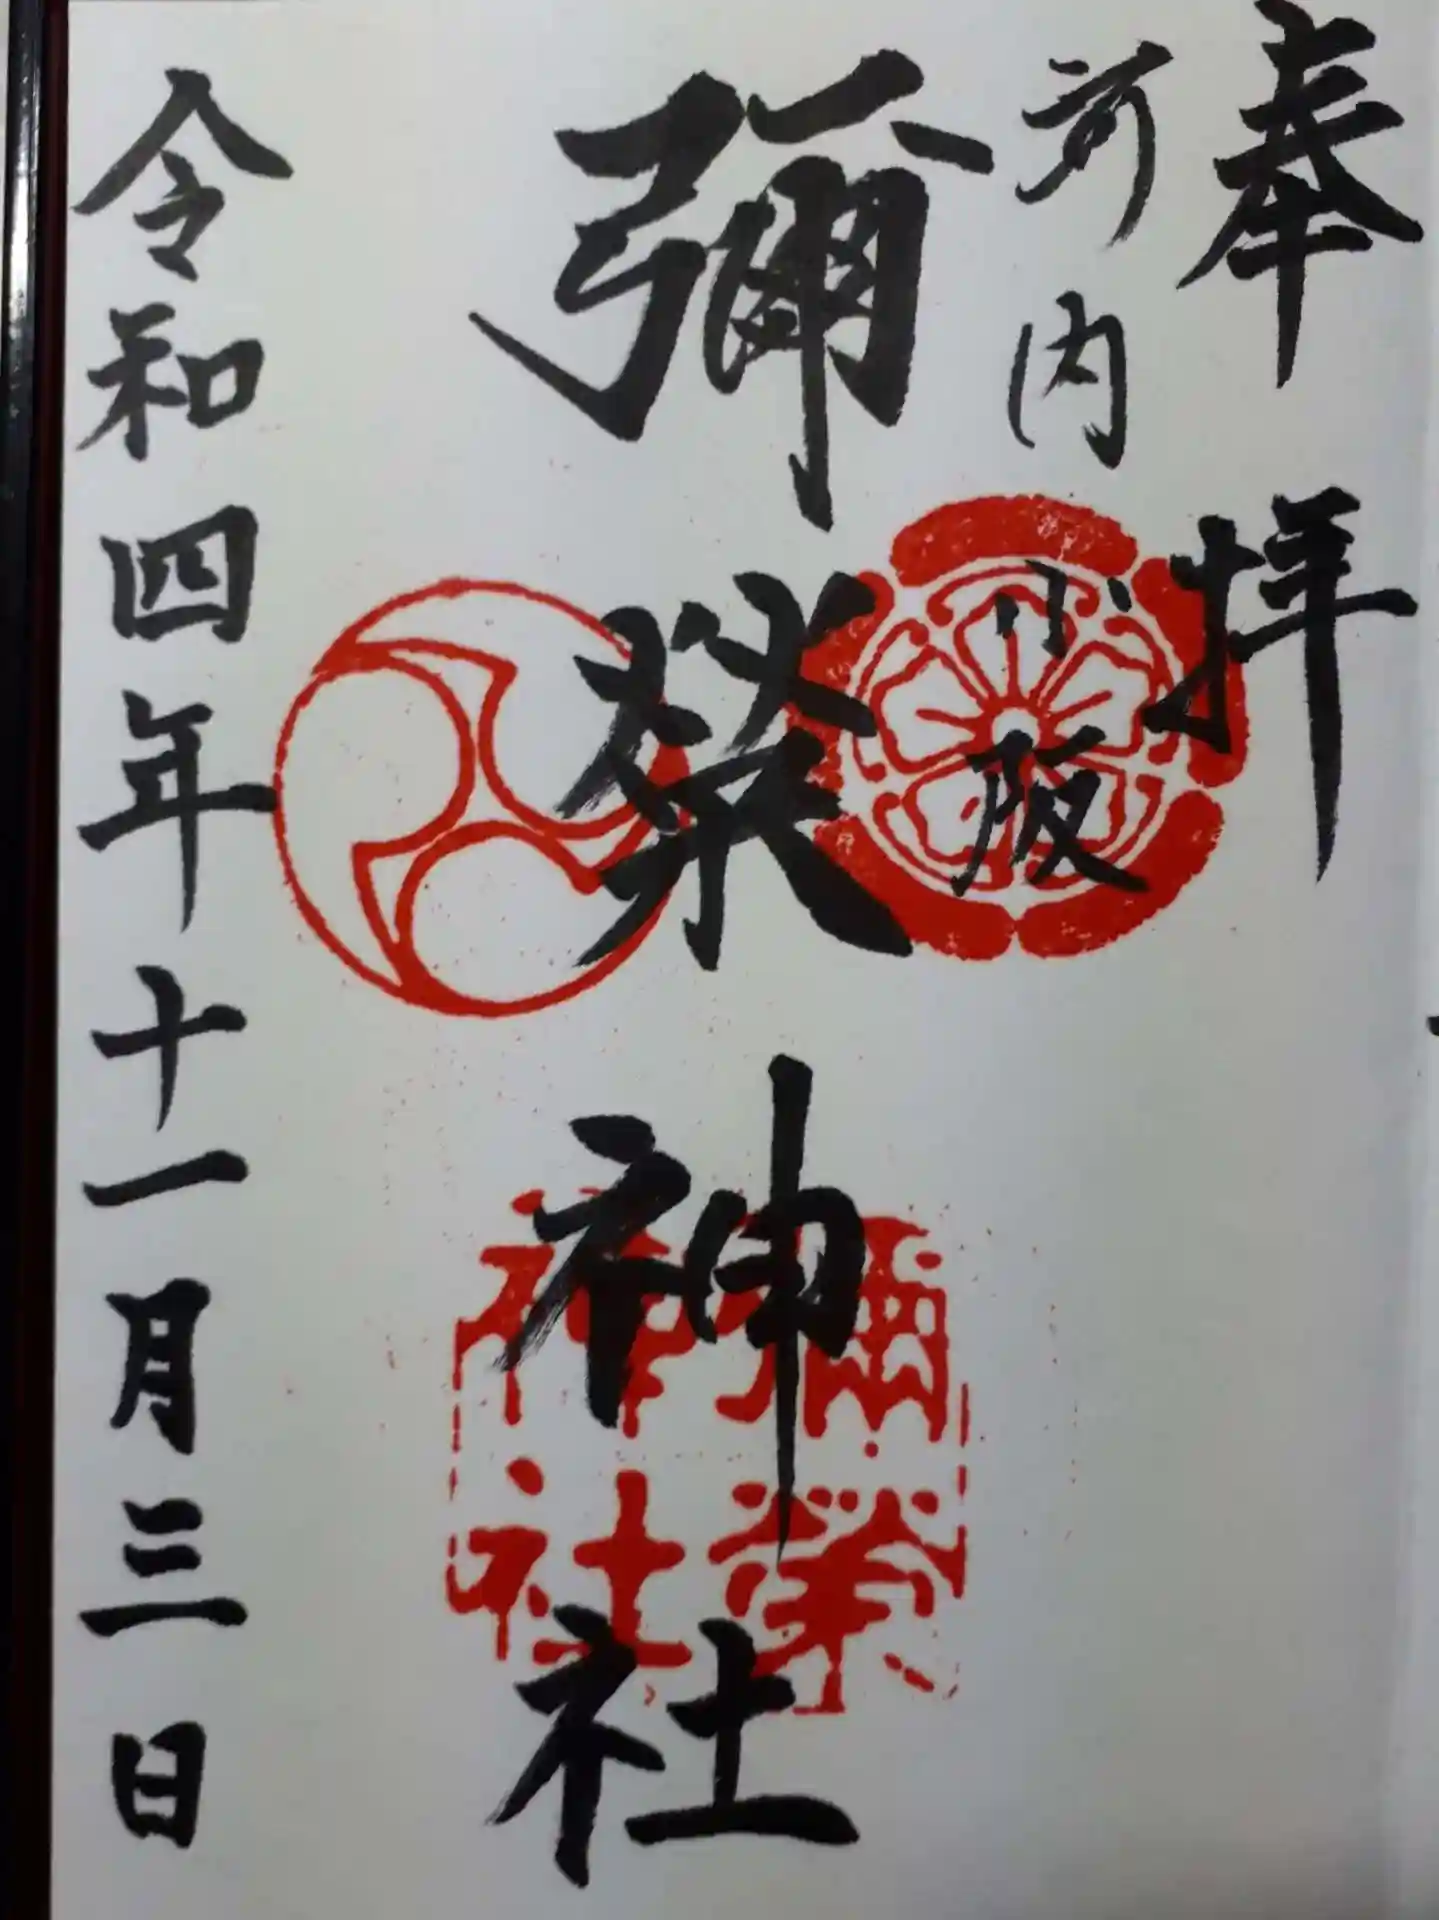 奉拝
河内小阪
彌榮神社
彌榮
神社
令和四年十一月三日